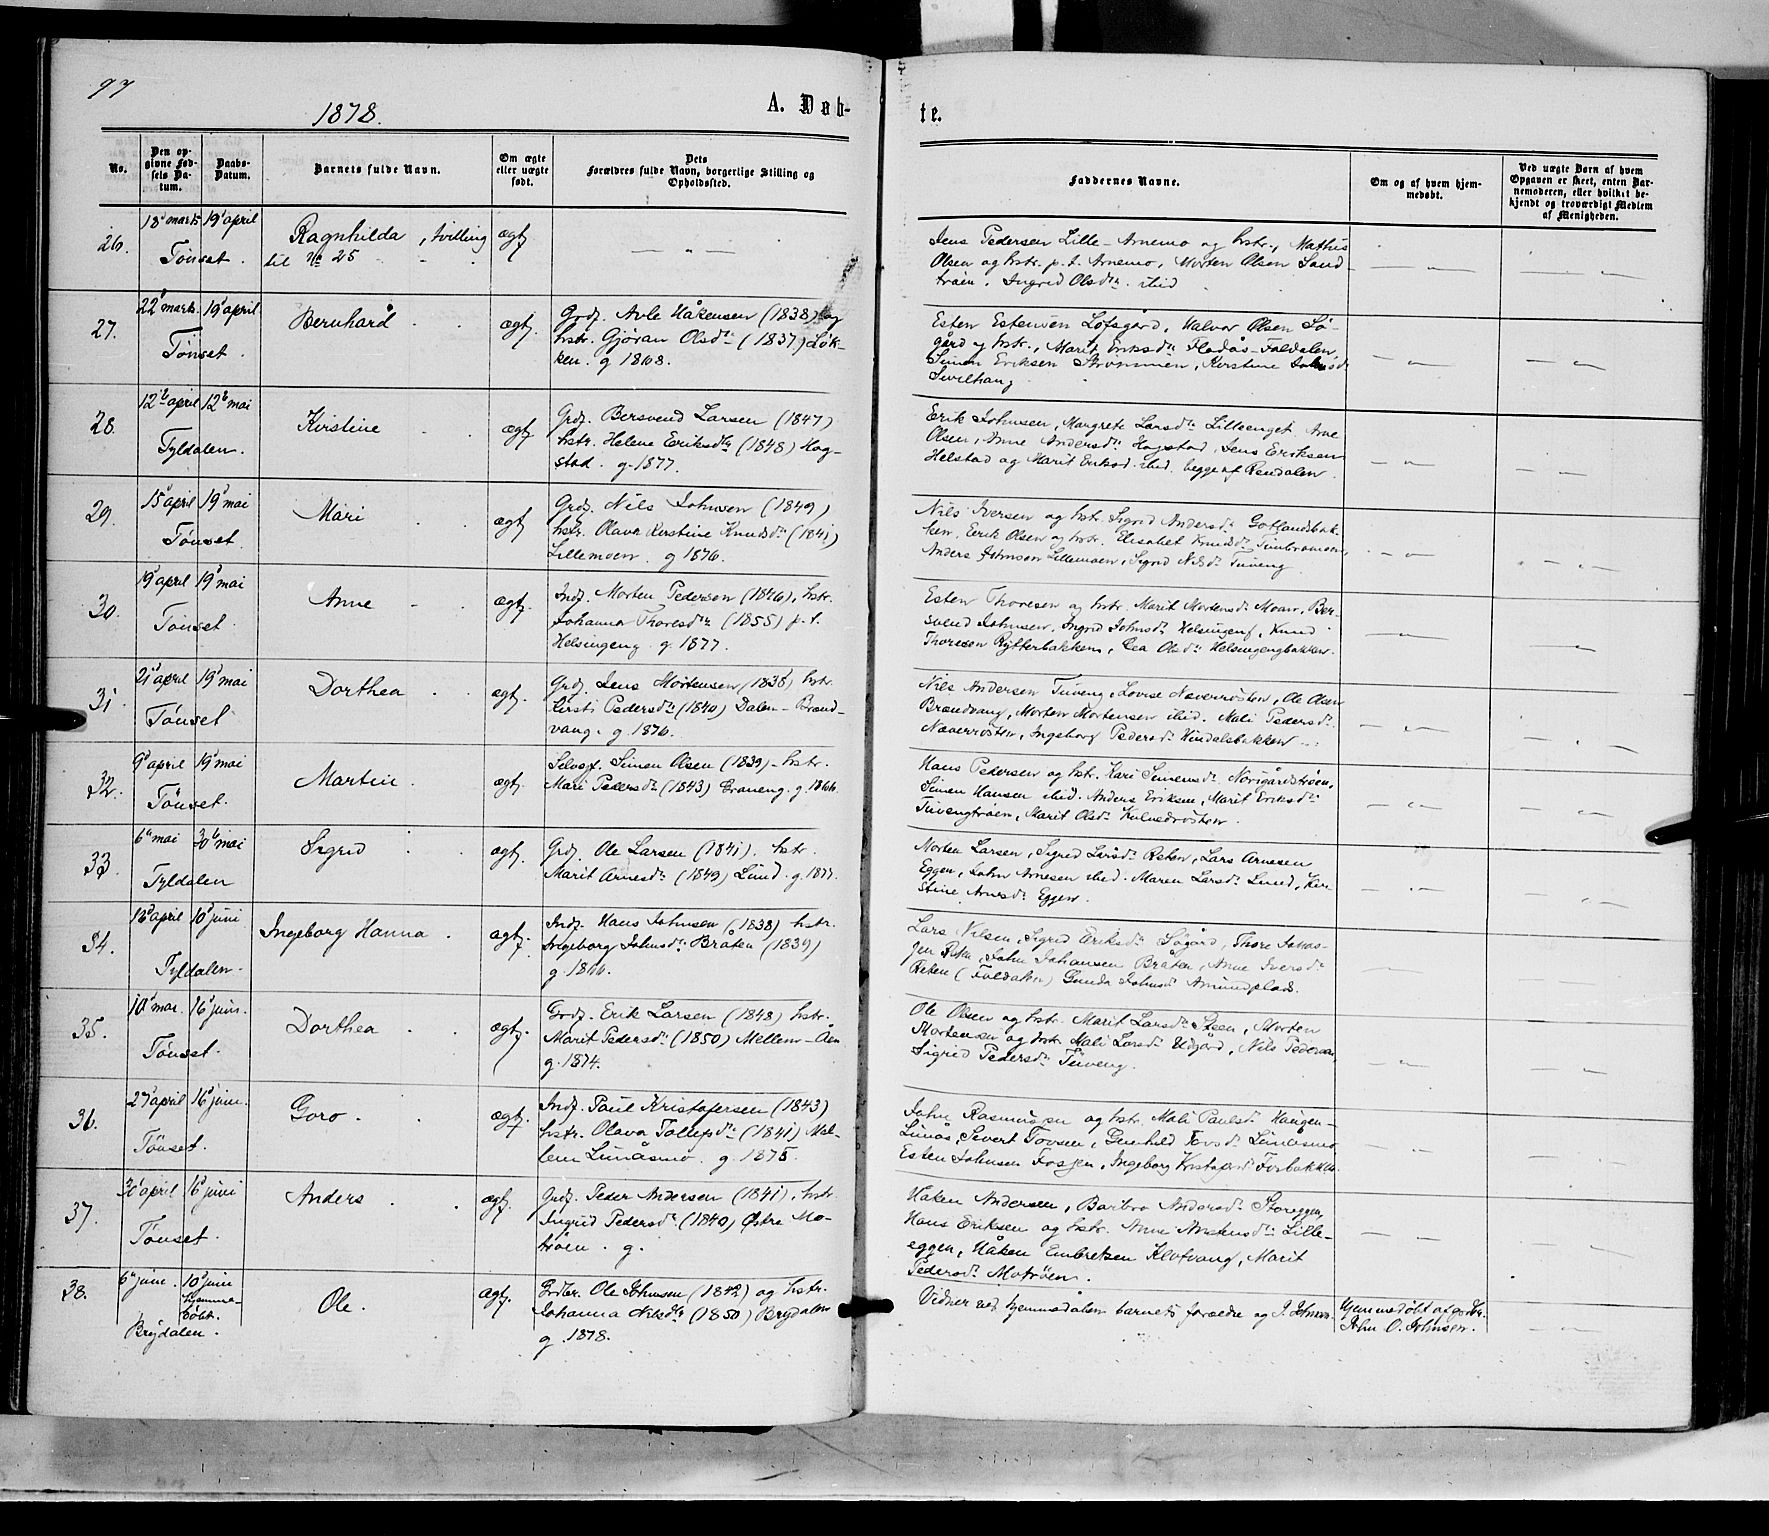 97
1878.
A. Døb-
te.
No.
Den op-
givne Fød-
sels Da-
tum.
Daabs-
Datum.
Barnets fulde Navn.
Om ægte
eller uægte
født.
Dets
Forældres fulde Navn, borgerlige Stilling og
Opholdssted.
Faddernes Navne.
Om og af hvem hjem-
medøbt.
Ved uægte Børn af hvem
Opgaven er skeet, enten Bar-
nemoderen, eller hvilket be-
kjendt og troværdigt Medlem
af Menigheden.
26.
18 marts 19 april
Tønset.
Ragnhilda, tvilling
til No 25
ægt.
— " —
Jens Pedersen Lille-Arnemo og hstr., Mathis
Olsen og hstr. p. t. Arnemo, Morten Olsen Sand-
trøen. Ingrid Olsdtr. ibid
27.
22 marts 19 april
Tønset.
Bernhard
ægt.
Grdj. Avle Håkensen (1838) og
hstr. Gjøran Olsdtr (1837) Løk-
ken. g 1868.
Esten Estensen Løfsgård, Halvor Olsen Sø-
gård og hstr., Marit Eriksdtr Flodås-Foldalen,
Simen Eriksen Strømmen, Kirstine
Sivilhaug
28.
12te april 12te mai
Tyldalen.
Kirstine
ægt.
Grdj. Bersvend Larsen (1847)
hstr. Helene Eriksdtr (1848) Hog-
stad. g. 1877.
Erik Johnsen, Margrete Larsdtr Lilleenget. Arne
Olsen, Anne Andersdtr Hogstad, Jens Eriksen
Helstad og Marit Eriksd. ibid. begge af Rendalen.
29.
15 april 19 mai
Tønset.
Mari
ægt.
Grdj. Nils Johnsen (1849)
hstr. Olava Kirstine Knudsdtr (1841)
Lillemoen. g 1876.
Nils Iversen og hstr. Sigrid Andersdtr Gotlandsbak-
ken, Eerik Olsen og hstr. Elisabet Knudsdtr
Anders Johnsen Lillemoen, Sigrid Nilsdtr Tuveng.
30.
19 april 19 mai
Tønset.
Anne
ægt.
Indj. Morten Pedersen (1846), hstr.
Johanna Thoresdtr (1855) p. t.
Helsingeng g. 1877.
Esten Thoresen og hstr. Marit Mortensdtr Moan, Ber-
svend Johnsen, Ingrid Johnsdtr Helsingeng, Knud
Thoresen Rytterbakken, Lea Olsdtr Helsingengbakken.
31.
21 april 19 mai
Tønset.
Dorthea
ægt.
Grdj. Jens Mortensen (1838) hstr.
Kirsti Pedersdtr (1840) Dalen-Brænd-
vang. g. 1876.
Nils Andersen Tuveng, Lovise Næverrosten, Ole Olsen
Brændvang, Morten Mortensen ibid. Mali Pedersdtr
Næverrosten, Ingeborg Pedersdtr Hindalsbakken.
32.
9 april 19 mai
Tønset.
Martin
ægt.
Selvej. Simen Olsen (1839) hstr.
Mari Pedersdtr (1843) Graneng. g. 1866.
Hans Pedersen og hstr. Kari Simensdtr Norigårdstrøen,
Simen Hansen ibid. Anders Eriksen, Marit Eriksdtr
Tuvengtrøen, Marit Olsdtr
33.
6te mai 30te mai
Tyldalen
Sigrid
ægt.
Grdj. Ole Larsen (1841). hstr.
Marit Arnesdtr (1849) Lund. g. 1877.
Morten Larsen, Sigrid Larsdtr Reten, Lars Arnesen
Eggen, John Arnesen ibid. Maren Larsdtr Lund, Kir-
stine Arnesdtr Eggen.
34.
18 april 10 juni
Tyldalen.
Ingeborg Hanna
ægt.
Indj. Hans Johnsen (1838) hstr.
Ingeborg Johnsdtr. Bråten (1839)
g. 1866.
Lars Nilsen, Sigrid Eriksdtr Søgård, Thore Jonas-
sen Reten, John Johansen Bråten, Anne Iversdtr
Reten (Foldalen) Gunda Johnsdtr Amundplads.
35.
10 mai. 16 juni.
Tønset.
Dorthea
ægt.
Grdj. Erik Larsen (1848) hstr.
Marit Pedersdtr (1850) Mellem-Åen
g. 1874.
Ole Olsen og hstr. Marit Larsdtr Steen, Morten
Mortensen og hstr. Mali Larsdtr Udgård, Nils Pedersen
Sigrid Pedersdtr Tuveng.
36.
27 april 16 juni.
Tønset.
Goro
ægt.
Indj. Paul Kristofersen (1843)
hstr. Olava Tollefsdtr (1841) Mel-
lem Lunåsmo. g. 1875.
John Rasmussen og hstr. Mali Paulsdtr Haugen-
Lunås, Sivert Tovsen, Gunhild Tovsdtr Lunåsmo
Esten Johnsen Fosjen, Ingeborg Kristofersd Fosbakken.
37.
30 april 16 juni
Tønset.
Anders
ægt.
Grdj. Peder Andersen (1841), hstr.
Ingrid Pedersdtr (1840) Østre Mo-
trøen. g.
Haken Andersen, Barbro Andersdtr Storeggen,
Hans Eriksen og hstr. Anne Lille-
eggen, Håken Embretsen Klofvang, Marit
Pedersdtr Motrøen.
38.
6te juni. 10 juni
hjemme-
døbt.
Brydalen.
Ole.
ægt.
Grdbr. Ole Johnsen (1842) og hstr.
Johanna Nilsdtr (1850) Brydalen
g. 1878.
Vidner ved hjemmedåben barnets forældre og J. Johnsen.
hjemmedøbt af
John O. Johnsen.